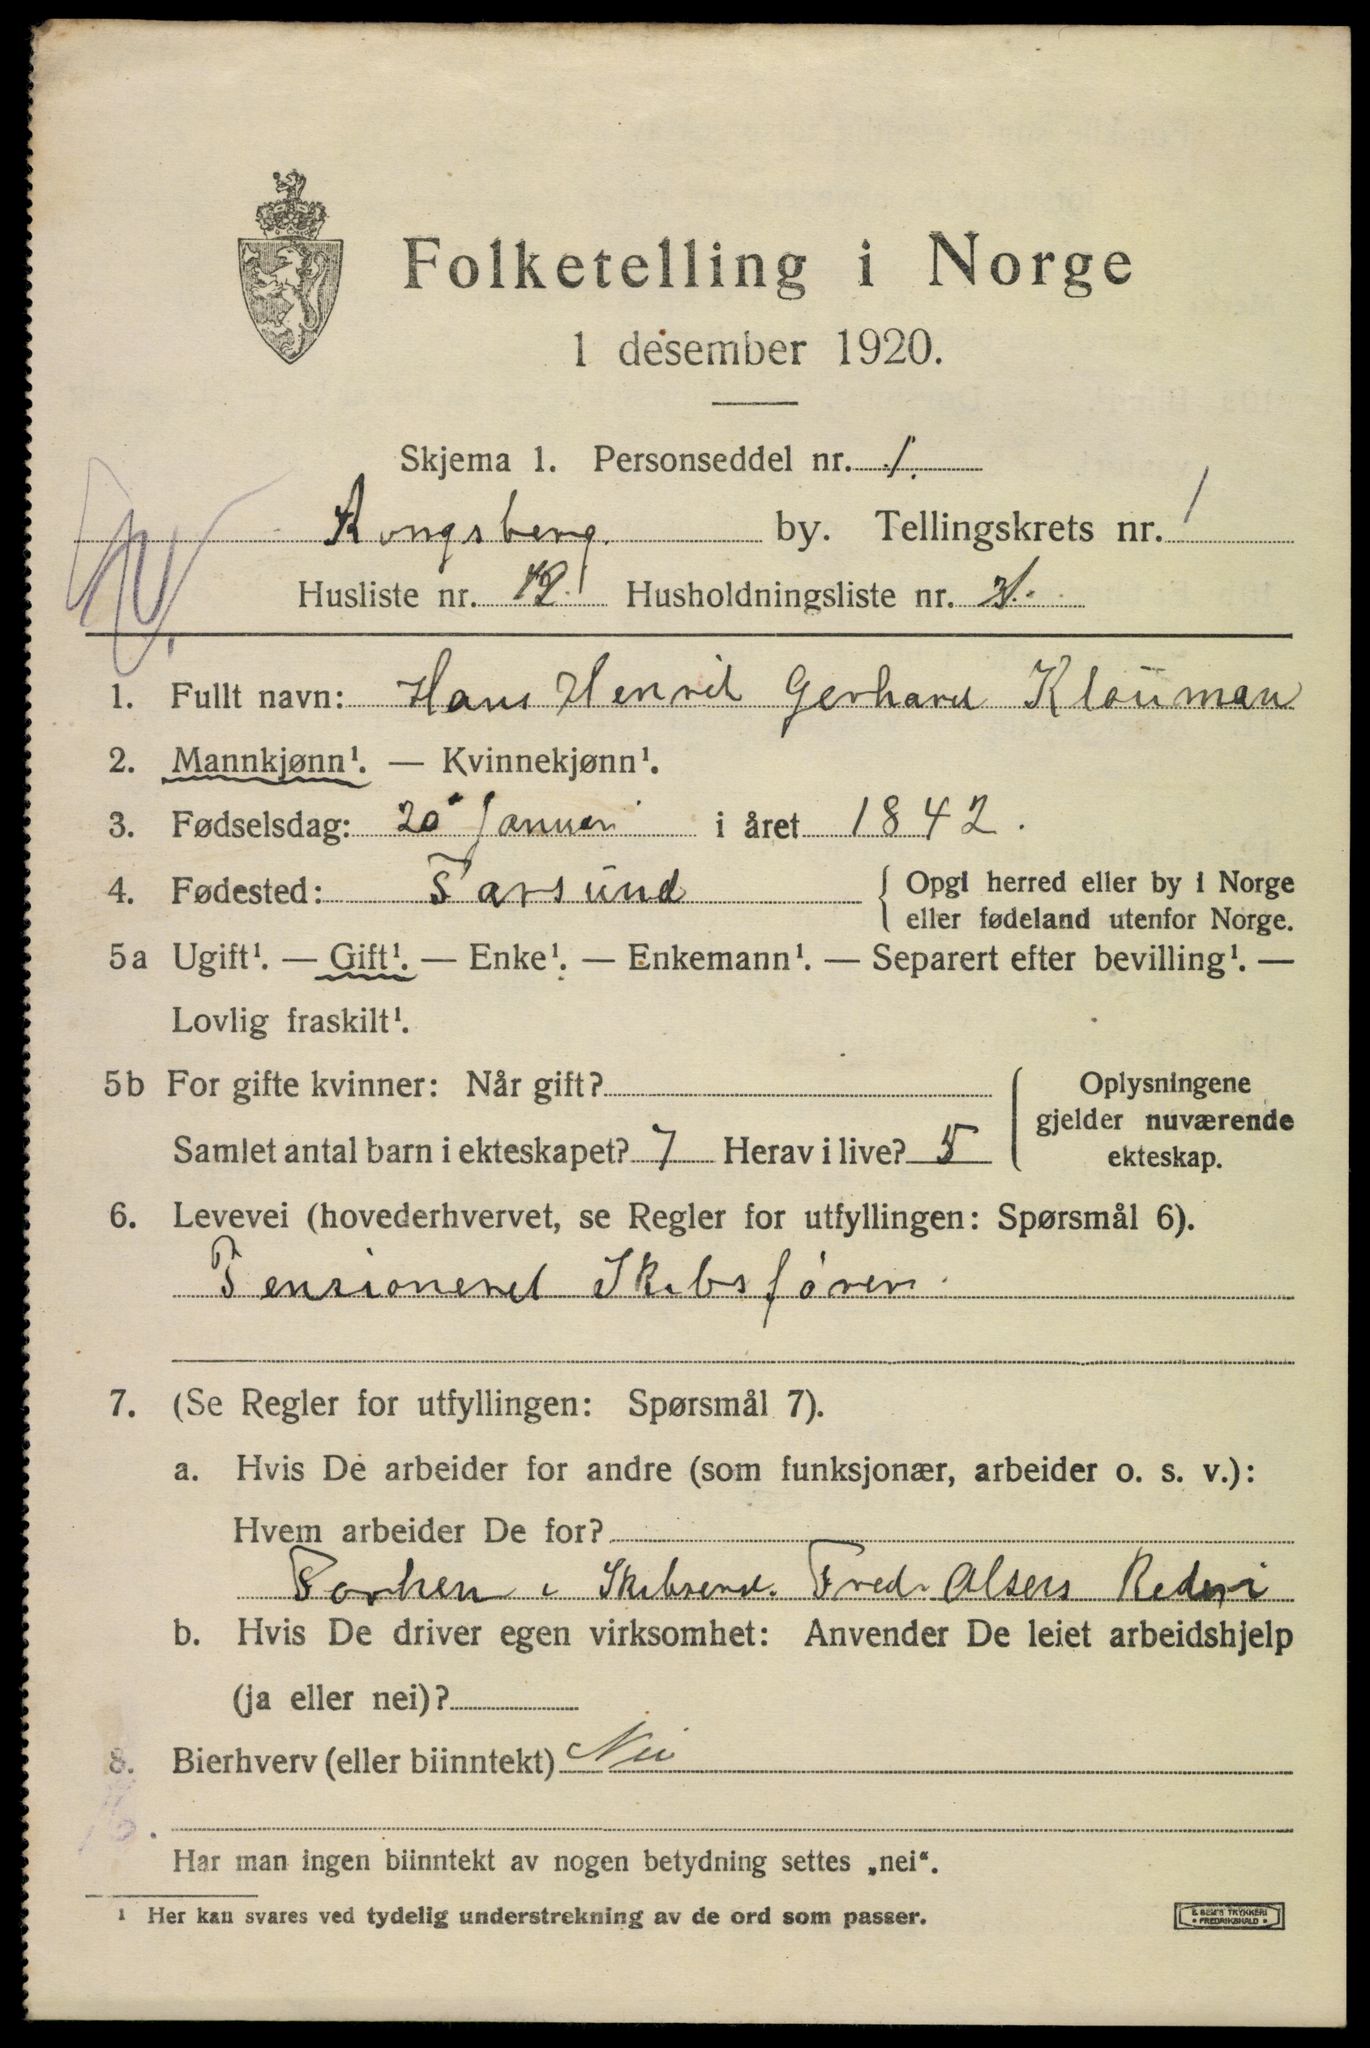 Folketelling i Norge
1 desember 1920.
Skjema 1. Personseddel nr. 1.
Kongsberg. by. Tellingskrets nr. 1
Husliste nr. Husholdningsliste nr.
1. Fullt navn: Hans Henrik Gerhard Klouman
2. Mannkjønn¹. — Kvinnekjønn¹.
3. Fødselsdag: 20 Januari i året 1842.
4. Fødested: Farsund { Opgi herred eller by i Norge
eller fødeland utenfor Norge.
5a Ugift¹. — Gift¹. — Enke¹. — Enkemann¹. — Separert efter bevilling¹. —
Lovlig fraskilt¹.
5b For gifte kvinner: Når gift? { Oplysningene
gjelder nuværende
Samlet antal barn i ekteskapet? 7 Herav i live? 5 ekteskap.
6. Levevei (hovederhvervet, se Regler for utfyllingen: Spørsmål 6).
Pensioneret Skibsfører.
7. (Se Regler for utfyllingen: Spørsmål 7).
a. Hvis De arbeider for andre (som funksjonær, arbeider o. s. v.):
Hvem arbeider De for?
i Fred. Olsens Rederi
b. Hvis De driver egen virksomhet: Anvender De leiet arbeidshjelp
(ja eller nei)?
8. Bierhverv (eller biinntekt) Nei
Har man ingen biinntekt av nogen betydning settes „nei“.
¹ Her kan svares ved tydelig understrekning av de ord som passer.
E. SEM'S TRYKKERI
• FREDRIKSHALD •